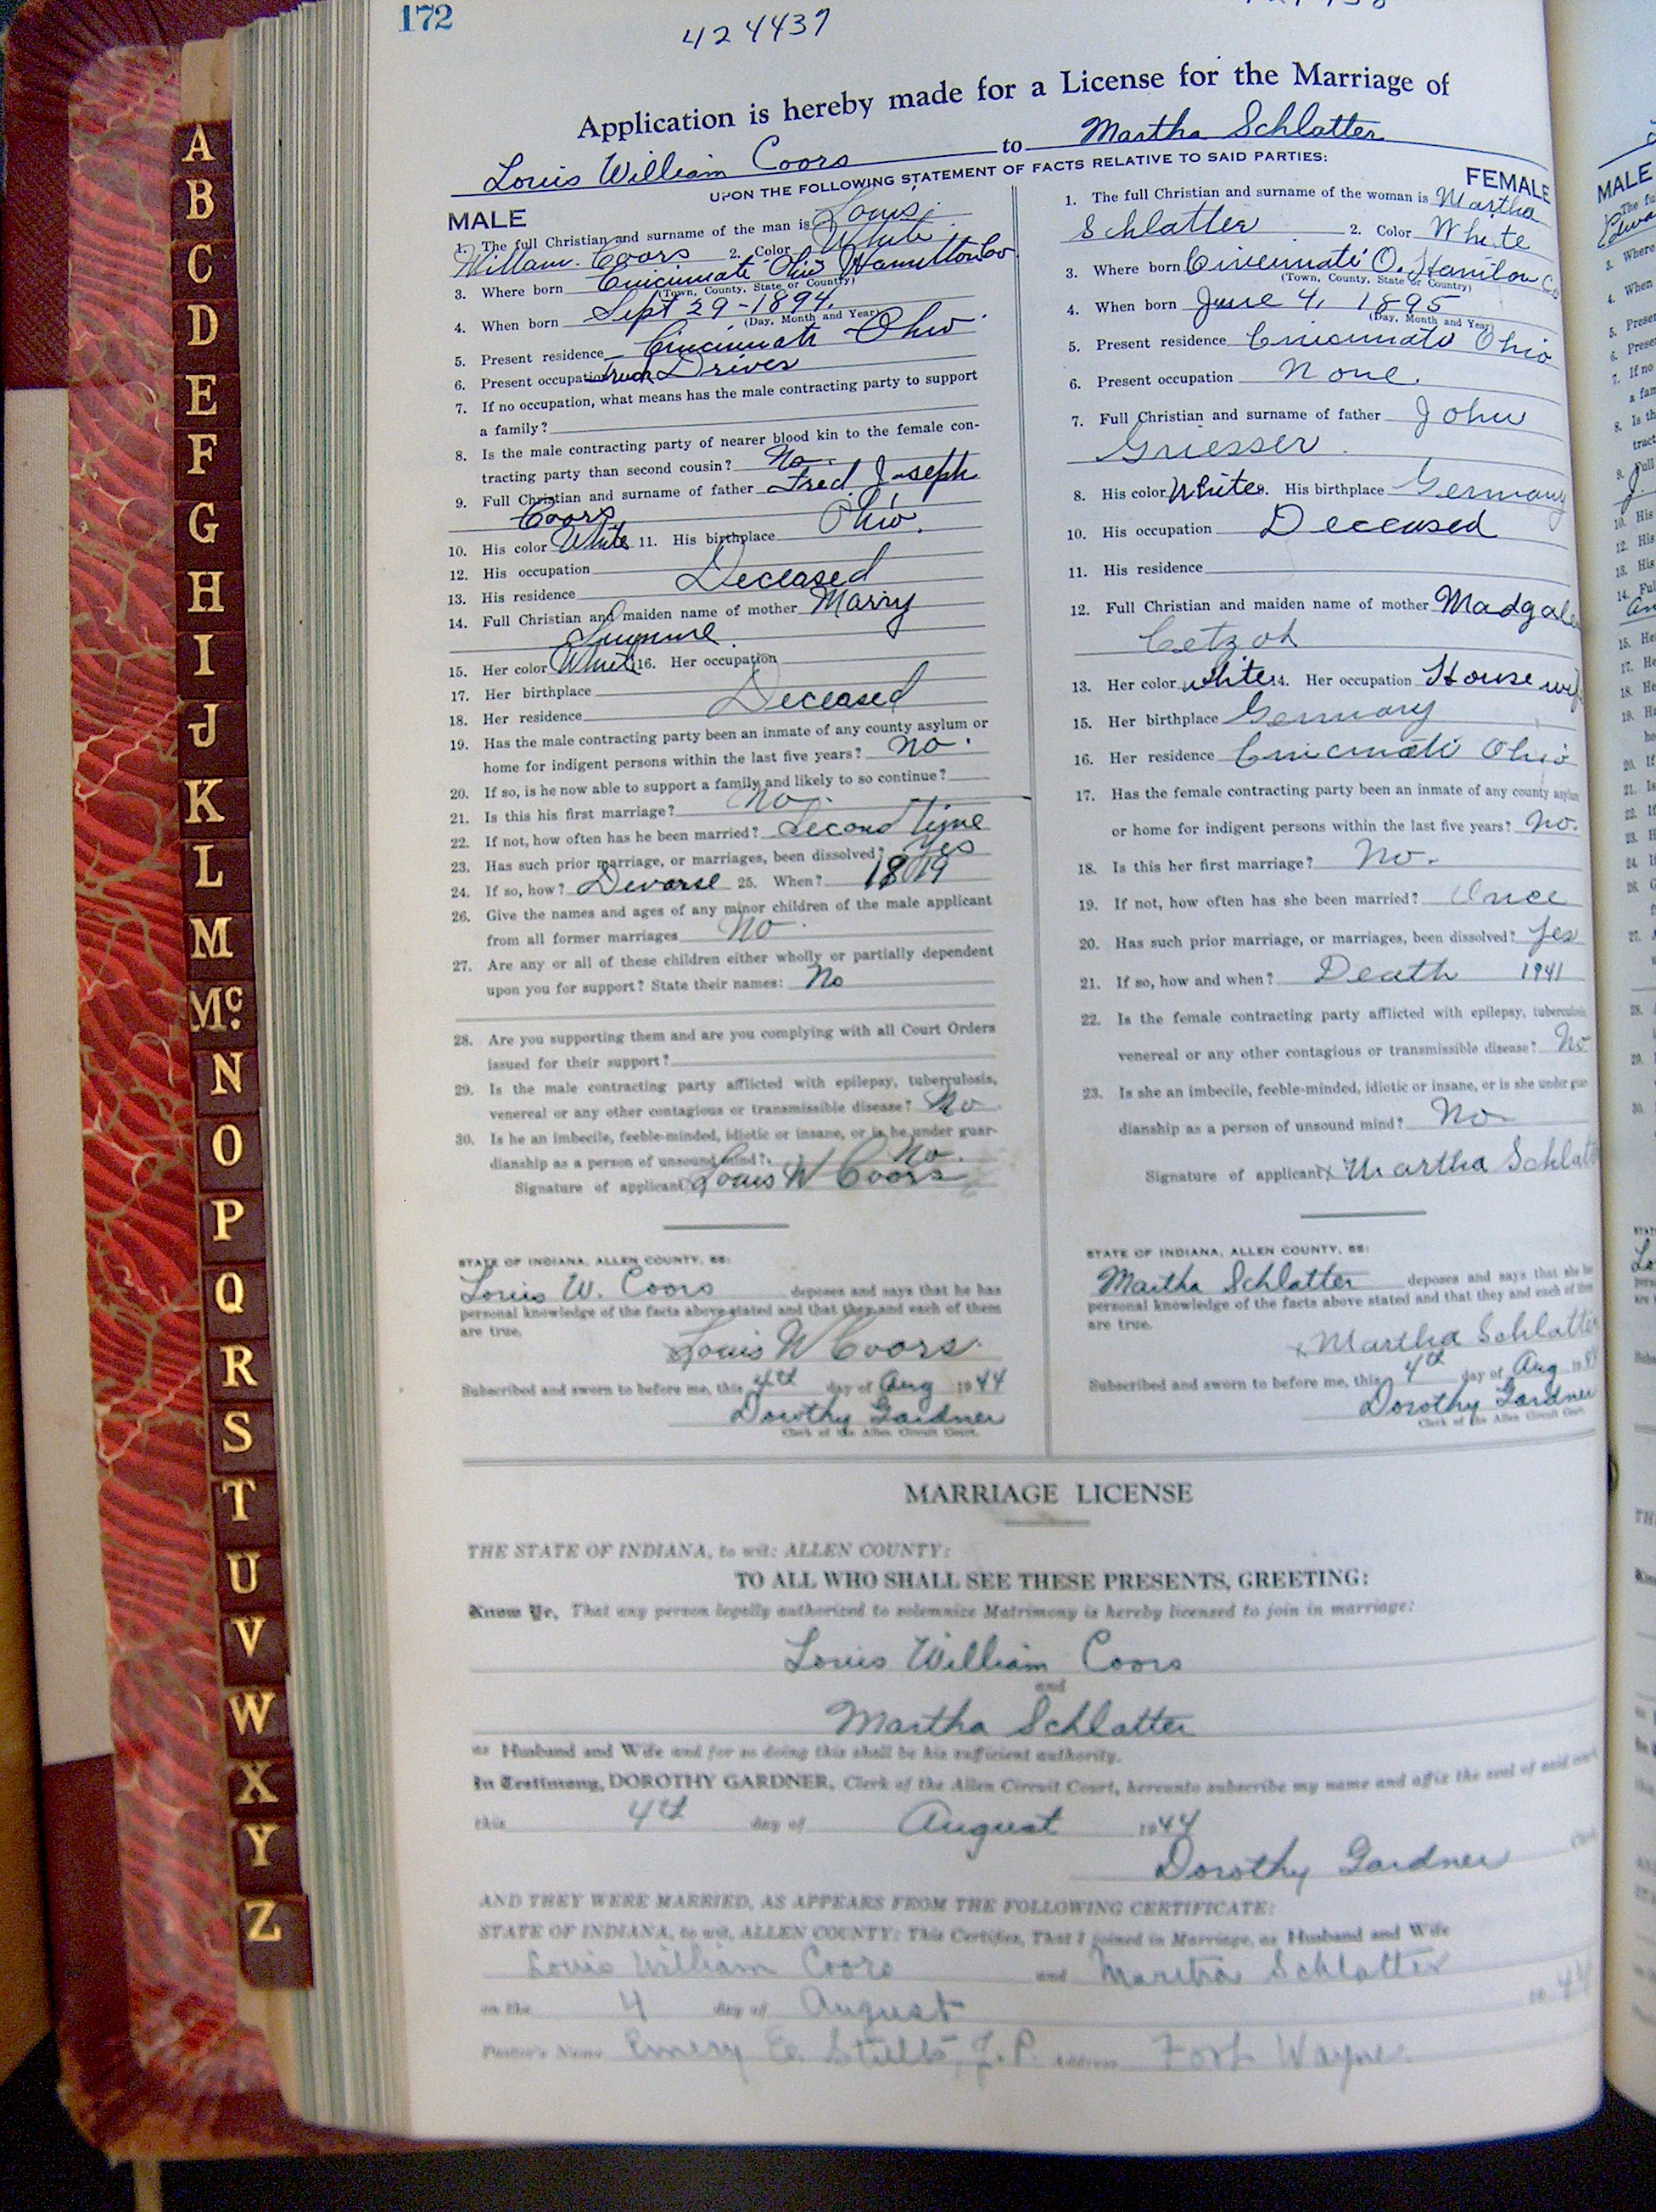 172
424437
Application is hereby made for a License for the Marriage of
Louis William Coors to Martha Schlatter
UPON THE FOLLOWING STATEMENT OF FACTS RELATIVE TO SAID PARTIES:
MALE
1. The full Christian and surname of the man is Louis
William Coors 2. Color White
3. Where born Cincinnati Ohio Hamilton Co
(Town, County, State or Country)
4. When born Sept 29-1894
(Day, Month and Year)
5. Present residence Cincinnati Ohio
6. Present occupation Truck Driver
7. If no occupation, what means has the male contracting party to support
a family?
8. Is the male contracting party of nearer blood kin to the female con-
tracting party than second cousin? No.
9. Full Christian and surname of father Fred Joseph
Coors
10. His color White 11. His birthplace Ohio.
12. His occupation
13. His residence Deceased
14. Full Christian and maiden name of mother Marry
15. Her color White 16. Her occupation
17. Her birthplace
18. Her residence Deceased
19. Has the male contracting party been an inmate of any county asylum or
home for indigent persons within the last five years? No.
20. If so, is he now able to support a family and likely to so continue?
21. Is this his first marriage? No.
22. If not, how often has he been married? Second time
23. Has such prior marriage, or marriages, been dissolved? Yes
24. If so, how? Devorse 25. When?
26. Give the names and ages of any minor children of the male applicant
from all former marriages No.
27. Are any or all of these children either wholly or partially dependent
upon you for support? State their names: No
28. Are you supporting them and are you complying with all Court Orders
issued for their support?
29. Is the male contracting party afflicted with epilepsy, tuberculosis,
venereal or any other contagious or transmissible disease? No
30. Is he an imbecile, feeble-minded, idiotic or insane, or is he under guar-
dianship as a person of unsound mind? No.
Signature of applicant Louis W Coors
STATE OF INDIANA, ALLEN COUNTY, SS:
Louis W. Coors deposes and says that he has
personal knowledge of the facts above stated and that they and each of them
are true.
x Louis W Coors
Subscribed and sworn to before me, this 4th day of Aug 1944
Dorothy Gardner
Clerk of the Allen Circuit Court.
FEMALE
1. The full Christian and surname of the woman is Martha
Schlatter 2. Color White
3. Where born Cincinnati O. Hamilton Co
(Town, County, State or Country)
4. When born June 4, 1895
(Day, Month and Year)
5. Present residence Cincinnati Ohio
6. Present occupation None.
7. Full Christian and surname of father John
Griesser
8. His color White 9. His birthplace Germany
10. His occupation Deceased
11. His residence
12. Full Christian and maiden name of mother Madgale
13. Her color White 14. Her occupation Housewife
15. Her birthplace Germany
16. Her residence Cincinnati Ohio
17. Has the female contracting party been an inmate of any county asylum
or home for indigent persons within the last five years? No.
18. Is this her first marriage? No.
19. If not, how often has she been married? Once
20. Has such prior marriage, or marriages, been dissolved? Yes
21. If so, how and when? Death 1941
22. Is the female contracting party afflicted with epilepsy, tuberculosis,
venereal or any other contagious or transmissible disease? No
23. Is she an imbecile, feeble-minded, idiotic or insane, or is she under guar-
dianship as a person of unsound mind? No
Signature of applicant x Martha Schlatt
STATE OF INDIANA, ALLEN COUNTY, SS:
Martha Schlatter deposes and says that she has
personal knowledge of the facts above stated and that they and each of them
are true.
x Martha Schlatte
Subscribed and sworn to before me, this 4th day of Aug 1944
Dorothy Gardner
Clerk of the Allen Circuit Court.
MARRIAGE LICENSE
THE STATE OF INDIANA, to wit: ALLEN COUNTY:
TO ALL WHO SHALL SEE THESE PRESENTS, GREETING:
Know Ye, That any person legally authorized to solemnize Matrimony is hereby licensed to join in marriage:
Louis William Coors
and
Martha Schlatter
as Husband and Wife and for so doing this shall be his sufficient authority.
In Testimony, DOROTHY GARDNER, Clerk of the Allen Circuit Court, hereunto subscribe my name and affix the seal of said court
this 4th day of August 1944
Dorothy Gardner
AND THEY WERE MARRIED, AS APPEARS FROM THE FOLLOWING CERTIFICATE:
STATE OF INDIANA, to wit, ALLEN COUNTY: This Certifies, That I joined in Marriage, as Husband and Wife
Louis William Coors and Martha Schlatter
on the 4 day of August 1944
Pastor's Name Emery E. J.P. Address Fort Wayne.
A
B
C
D
E
F
G
H
I
J
K
L
M
Mc.
N
O
P
Q
R
S
T
U
V
W
X
Y
Z
MALE